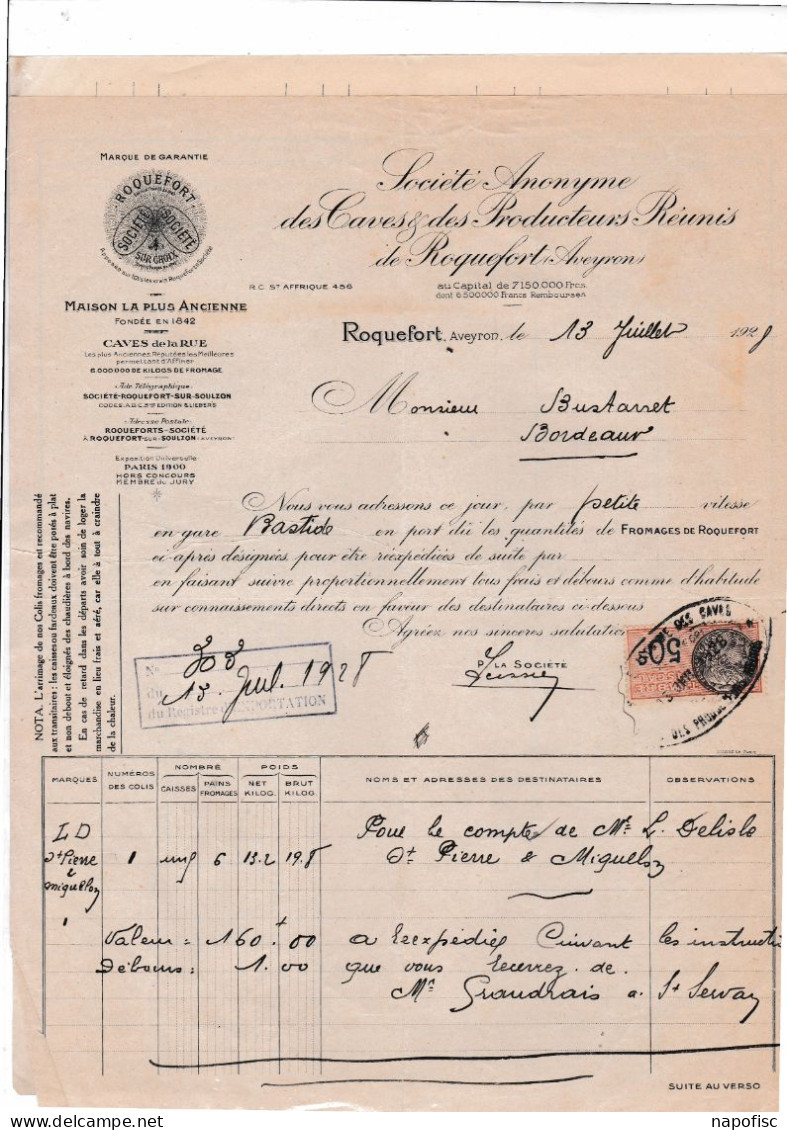 MARQUE DE GARANTIE
ROQUEFORT
SOCIÉTÉ SOCIÉTÉ
SUR CHOIX
Société Anonyme
des Caves & des Producteurs Réunis
de Roquefort (Aveyron)
R.C. ST AFFRIQUE 456
au Capital de 7.150.000 Frcs.
dont 6.500.000 Francs Remboursés
MAISON LA PLUS ANCIENNE
FONDÉE EN 1842
CAVES de la RUE
Les plus Anciennes, Réputées les Meilleures
permettant d'Affiner
6.000.000 DE KILOGS DE FROMAGE
Adr. Télégraphique:
SOCIÉTÉ-ROQUEFORT-SUR-SOULZON
CODES A.B.C. 5th EDITION & LIEBER'S
Adresse Postale:
ROQUEFORTS-SOCIÉTÉ
À ROQUEFORT-SUR-SOULZON (AVEYRON)
Exposition Universelle
PARIS 1900
HORS CONCOURS
MEMBRE du JURY
Roquefort, Aveyron, le 13 Juillet 1928
Monsieur Bustarret
Bordeaux
NOTA. L'arrimage de nos Colis fromages est recommandé
aux transitaires: les caisses ou fardeaux doivent être posés à plat
et non debout et éloignés des chaudières à bord des navires.
En cas de retard dans les départs avoir soin de loger la
marchandise en lieu frais et aéré, car elle a tout à craindre
de la chaleur.
Nous vous adressons ce jour, par petite vitesse
en gare Bastide en port dû les quantités de FROMAGES DE ROQUEFORT
ci-après désignées, pour être réexpédiées de suite par
en faisant suivre proportionnellement tous frais et débours comme d'habitude
sur connaissements directs en faveur des destinataires ci-dessous
Agréez nos sincères salutations
P. LA SOCIÉTÉ
No 33
du 13 Juil. 1928
du Registre d'EXPORTATION
50c
DES CAVES
MARQUES NUMÉROS DES COLIS NOMBRE CAISSES PAINS FROMAGES POIDS NET KILOG. BRUT KILOG. NOMS ET ADRESSES DES DESTINATAIRES OBSERVATIONS
LD Pour le compte de Mr L. Delisle
St Pierre 1 une 6 13.2 19.8 St Pierre & Miquelon
&
Miquelon
1
Valeur = 160.00 a réexpédier suivant les instructi
Débours = 1.00 que vous recevrez de
Mr Grandrais a St Servan
SUITE AU VERSO
napofisc